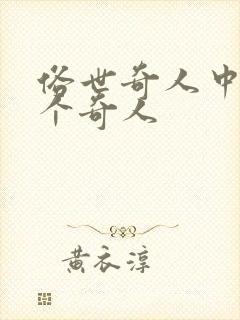 俗世奇人中
个奇人
黄衣淳